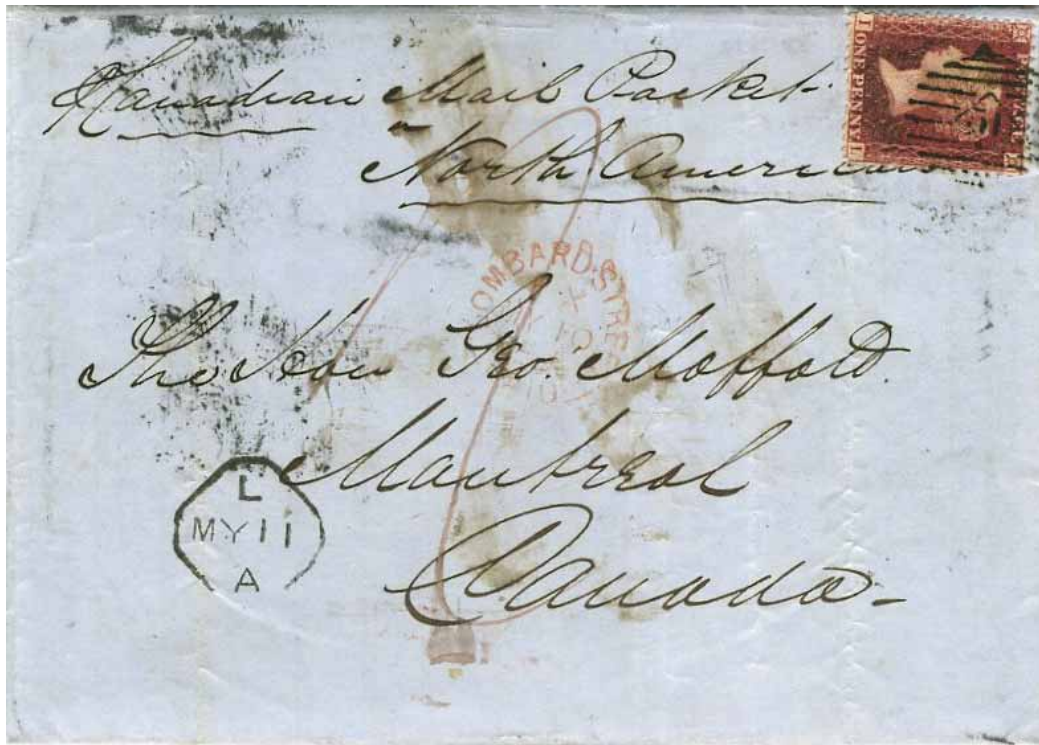 Canadian Mail Packet
North American
ONE PENNY
LOMBARD·STREET
The Hon Geo. Moffatt.
Montreal
Canada -
L
MY 11
A